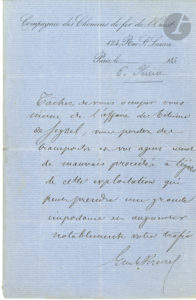 Compagnie des Chemins de fer de l'Ouest
124, Rue St Lazare
Paris, le 185
E. Pereire
Tachez de vous occuper vous
même de l'affaire des bitumes
de Seyssel, vous perdez des
transports en vos agens usent
de mauvais procédés à l'égard
de cette exploitation qui
peut prendre une grande
importance et augmenter
notablement votre trafic
Emile Pereire